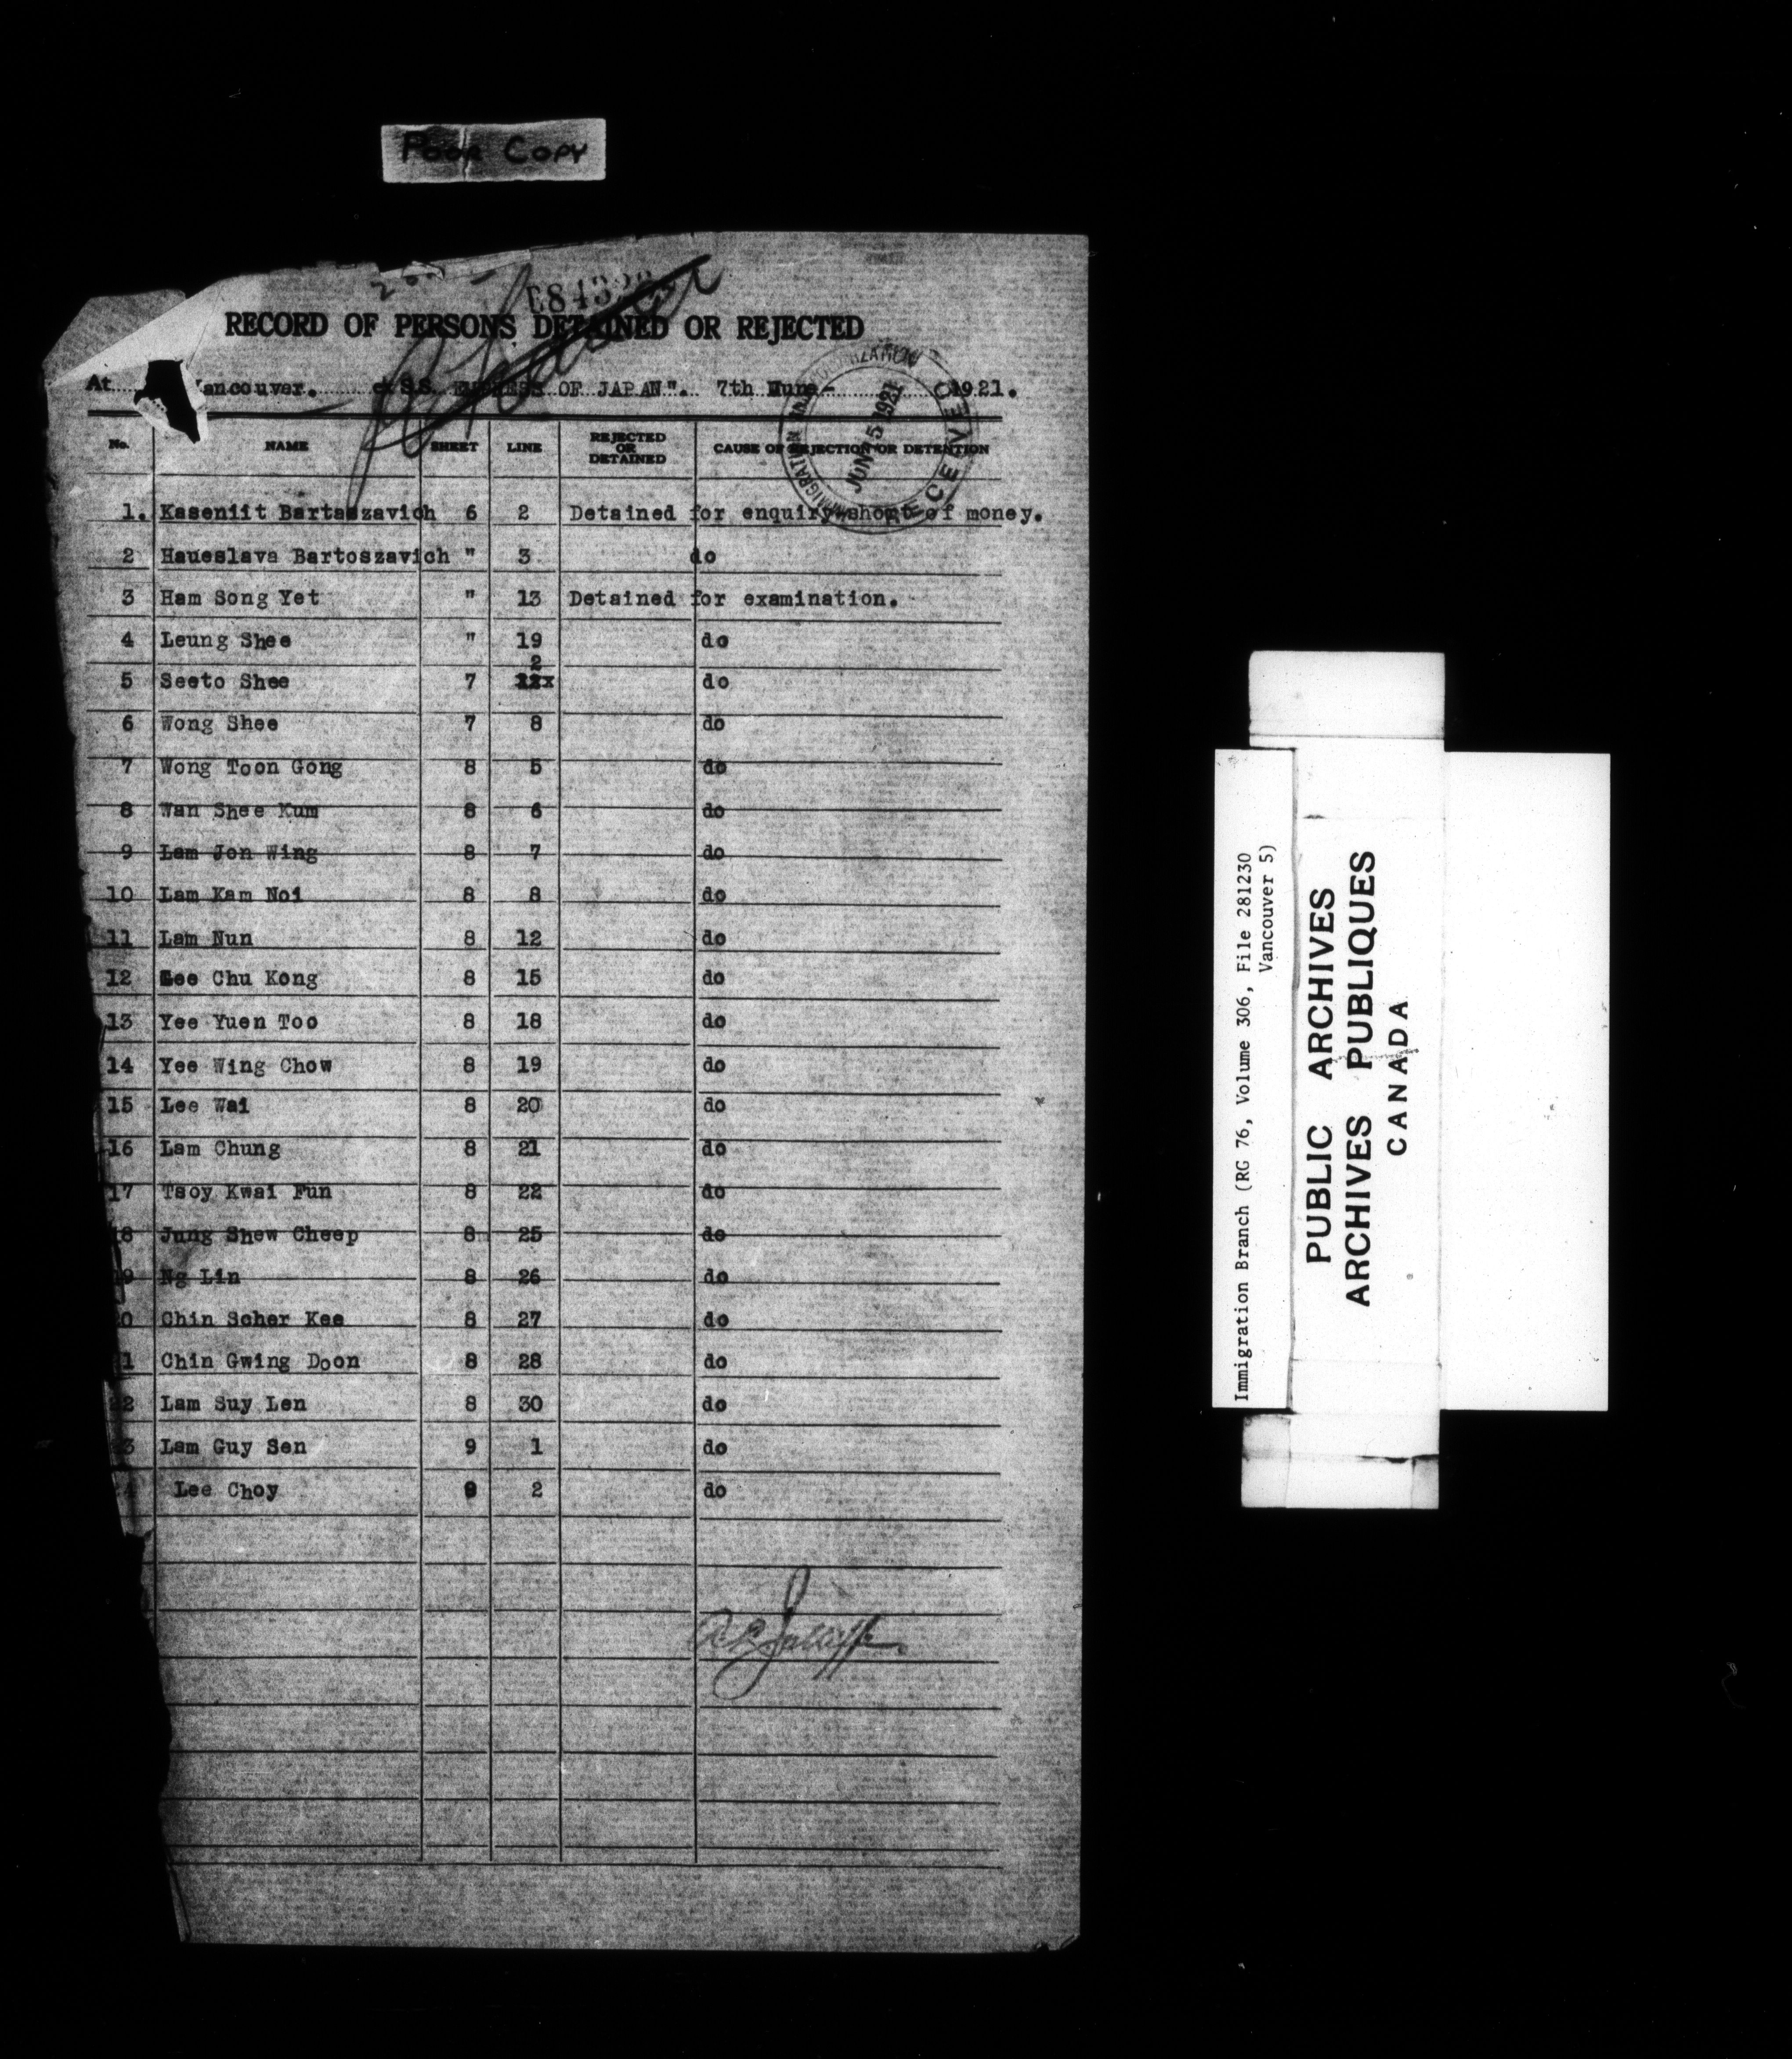 Poor Copy
E843
RECORD OF PERSONS DETAINED OR REJECTED
At Vancouver. ex S.S. EMPRESS OF JAPAN". 7th June- 1921.
No. NAME SHEET LINE REJECTED OR DETAINED CAUSE OF REJECTION OR DETENTION
IMMIGRATION AND COLONIZATION
JUN 15 1921
RECEIVED
1. Kaseniit Bartaszavich 6 2 Detained for enquiry short of money.
2 Haueslava Bartoszavich " 3 do
3 Ham Song Yet " 13 Detained for examination.
4 Leung Shee " 19 do
5 Seeto Shee 7 2 do
6 Wong Shee 7 8 do
7 Wong Toon Gong 8 5 do
8 Wan Shee Kum 8 6 do
9 Lam Jon Wing 8 7 do
10 Lam Kam Noi 8 8 do
11 Lam Nun 8 12 do
12 Lee Chu Kong 8 15 do
13 Yee Yuen Too 8 18 do
14 Yee Wing Chow 8 19 do
15 Lee Wai 8 20 do
16 Lam Chung 8 21 do
17 Tsoy Kwai Fun 8 22 do
8 Jung Shew Cheep 8 25 do
9 Ng Lin 8 26 do
0 Chin Scher Kee 8 27 do
1 Chin Gwing Doon 8 28 do
2 Lam Suy Len 8 30 do
3 Lam Guy Sen 9 1 do
4 Lee Choy 9 2 do
Immigration Branch (RG 76, Volume 306, File 281230
Vancouver 5)
PUBLIC ARCHIVES
ARCHIVES PUBLIQUES
CANADA